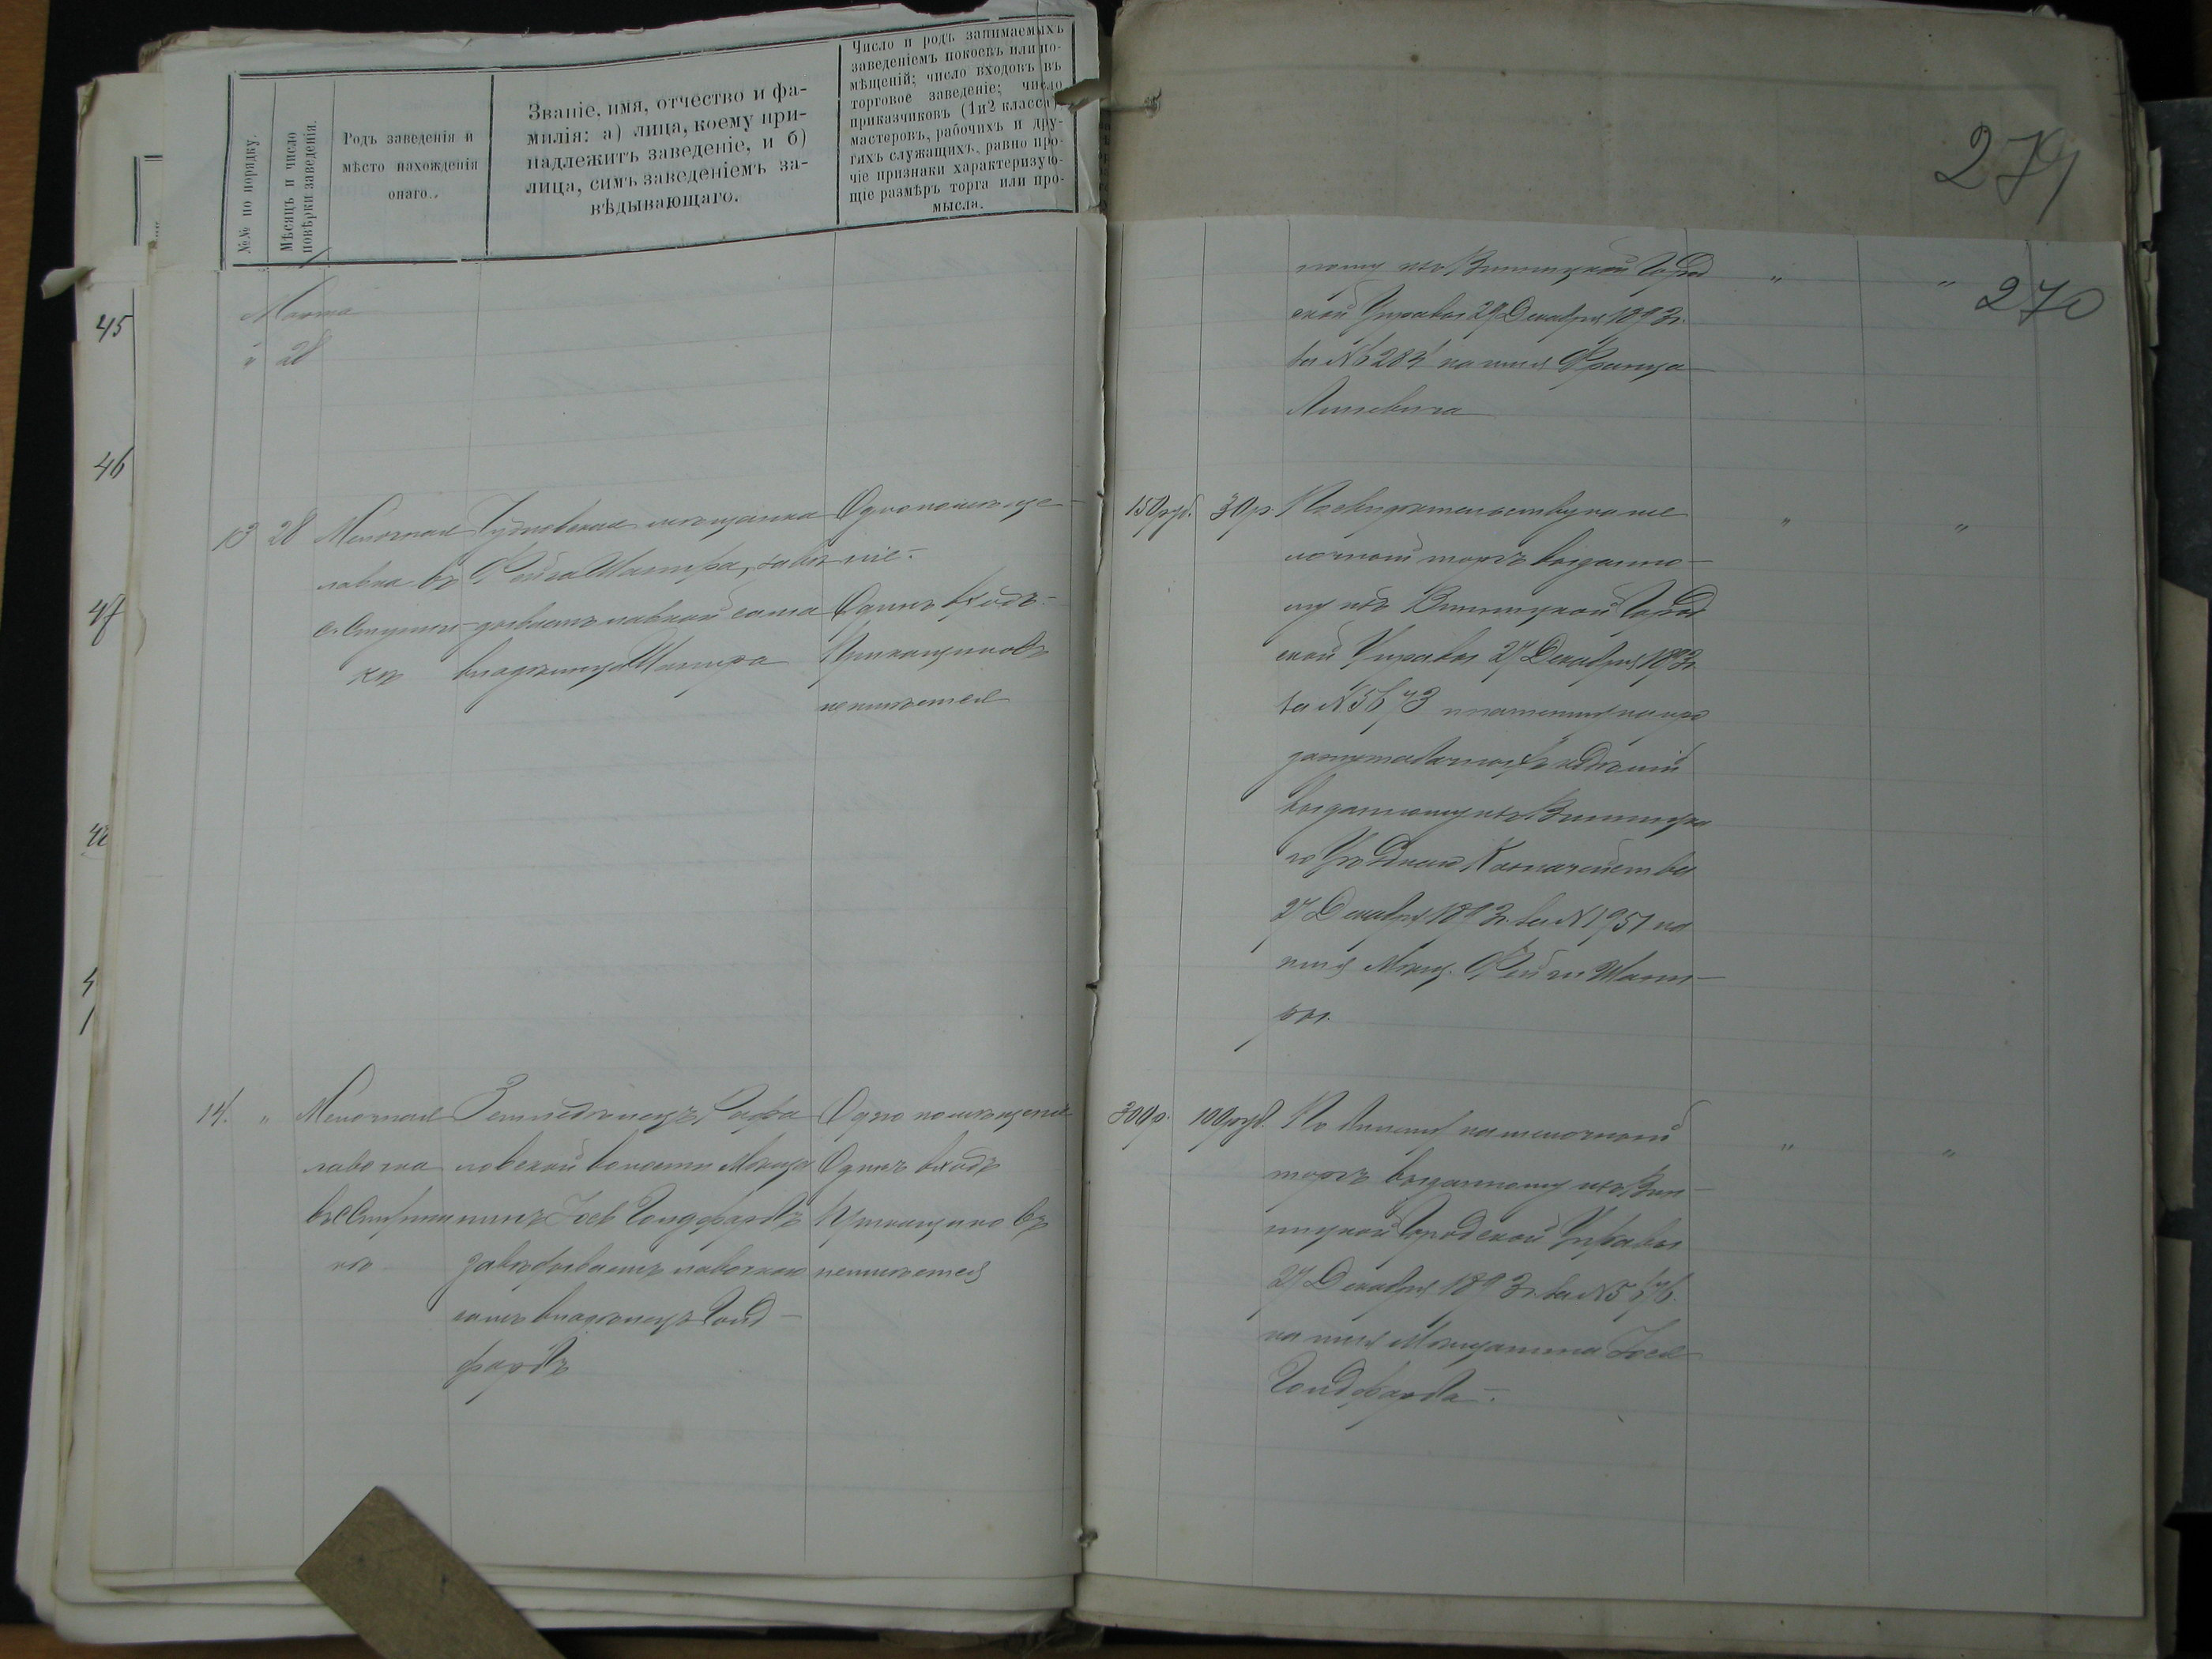 №№ по порядку.
Мѣсяцъ и число
повѣрки заведенія.
Родъ заведенія и
мѣсто нахожденія
онаго..
Званіе, имя, отчество и фа-
милія: а) лица, коему при-
надлежитъ заведеніе, и б)
лица, симъ заведеніемъ за-
вѣдывающаго.
Число и родъ занимаемыхъ
заведеніемъ покоевъ или по-
мѣщеній; число входовъ въ
торговое заведеніе; число
приказчиковъ (1 и 2 класса),
мастеровъ, рабочихъ и дру-
гихъ служащихъ, равно про-
чіе признаки характеризую-
щіе размѣръ торга или про-
мысла.
45
46
47
Марта
28
13 28
Мелочная
лавка въ
с. Стрижи-
къ
мѣщанка
Фейга Шапира, завѣ-
дываетъ лавкой сама
владѣлица Шапира
Одно помѣще-
ніе.-
Одинъ входъ.-
Прикащиковъ
неимѣется
14. "
Мелочная
лавочка
Земледѣлецъ
ловской волости Мѣща
нинъ Іось Гольдфарбъ
завѣдываетъ лавочкою
самъ владѣлецъ Гольд-
фарбъ
Одно помѣщеніе
Одинъ входъ
Прикащиковъ
неимѣется
279
270
ному изъ Винницкой Город
ской Управы 29 Декабря 1893 г.
за № 284 на имя Франца
150 руб. 30 р.
По свидѣтельству на ме
лочной торгъ выданно-
му изъ Винницкой Город
ской Управы 27 Декабря 1893 г.
за № 5673
выданному изъ Винницка
го Уѣзднаго Казначейства
27 Декабря 1893 г. за № 1951 на
имя Мѣщ. Фейги Шапи-
ры.
300 р. 100 руб.
на мелочной
торгъ выданному изъ Вин-
ницкой Городской Управы
27 Декабря 1893 г. за № 5676.
на имя Мѣщанина Іося
Гольдфарба-.